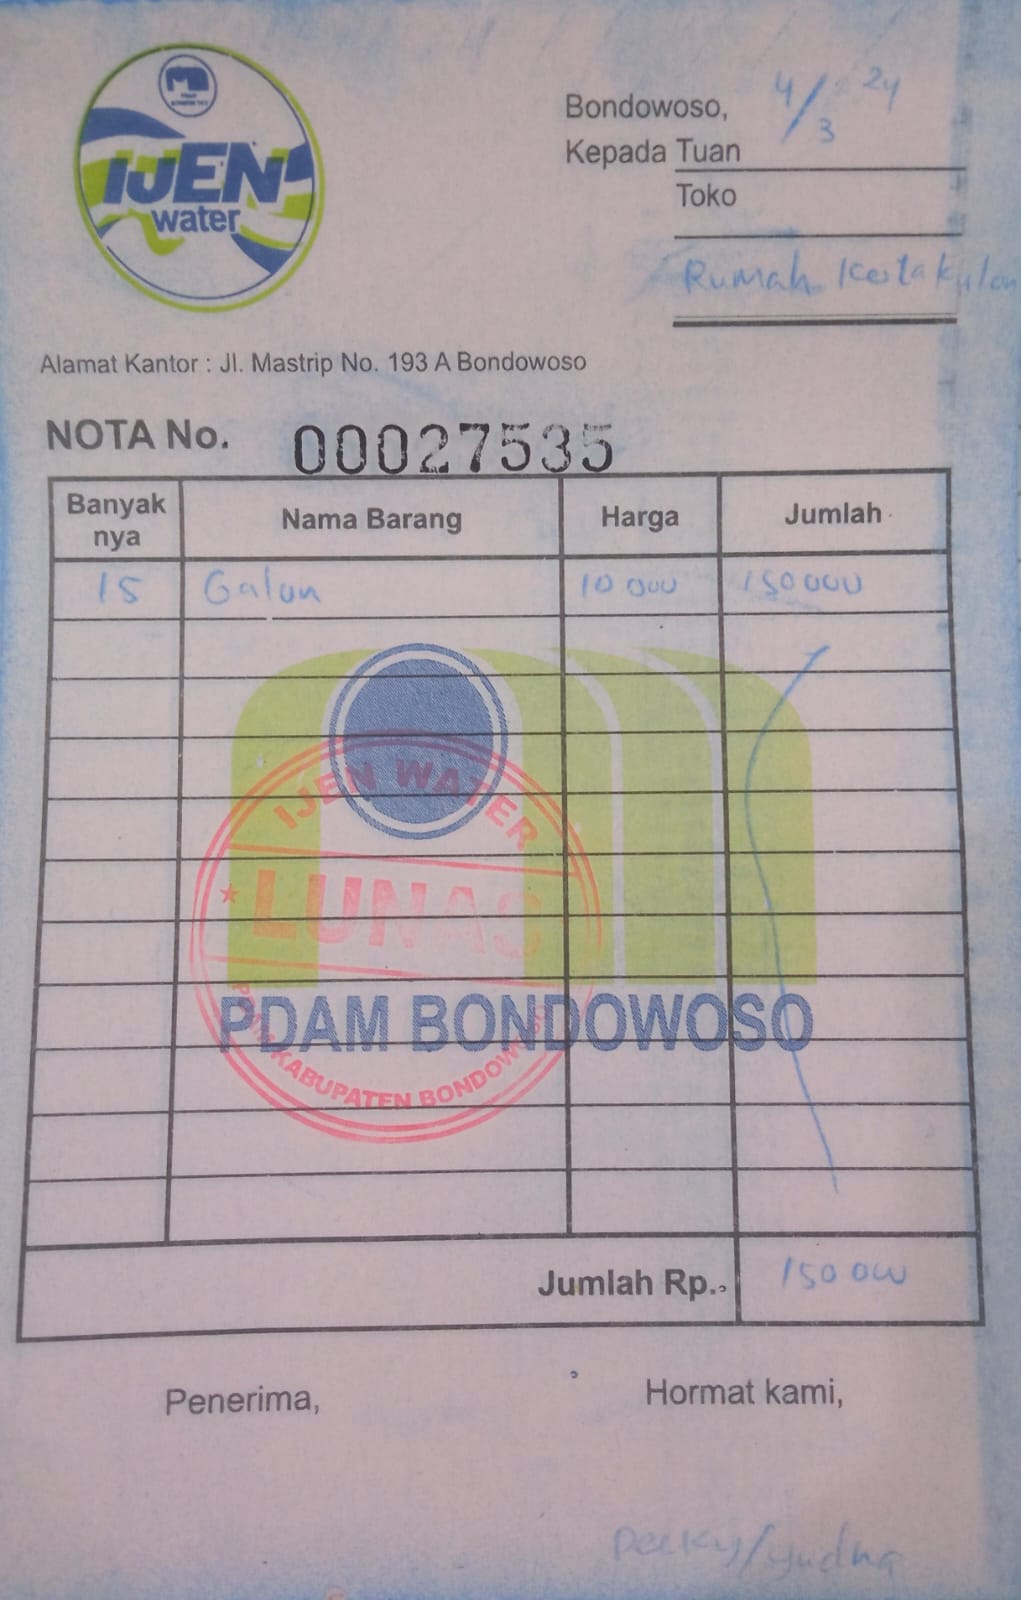 IJEN
water
Bondowoso, 4/3 24
Kepada Tuan
Toko
Rumah Kotakulon
Alamat Kantor : Jl. Mastrip No. 193 A Bondowoso
NOTA No. 00027535
Banyak nya Nama Barang Harga Jumlah
15 Galon 10 000 150 000
IJEN WATER
LUNAS
PDAM KABUPATEN BONDOWOSO
PDAM BONDOWOSO
Jumlah Rp. 150 000
Penerima, Hormat kami,